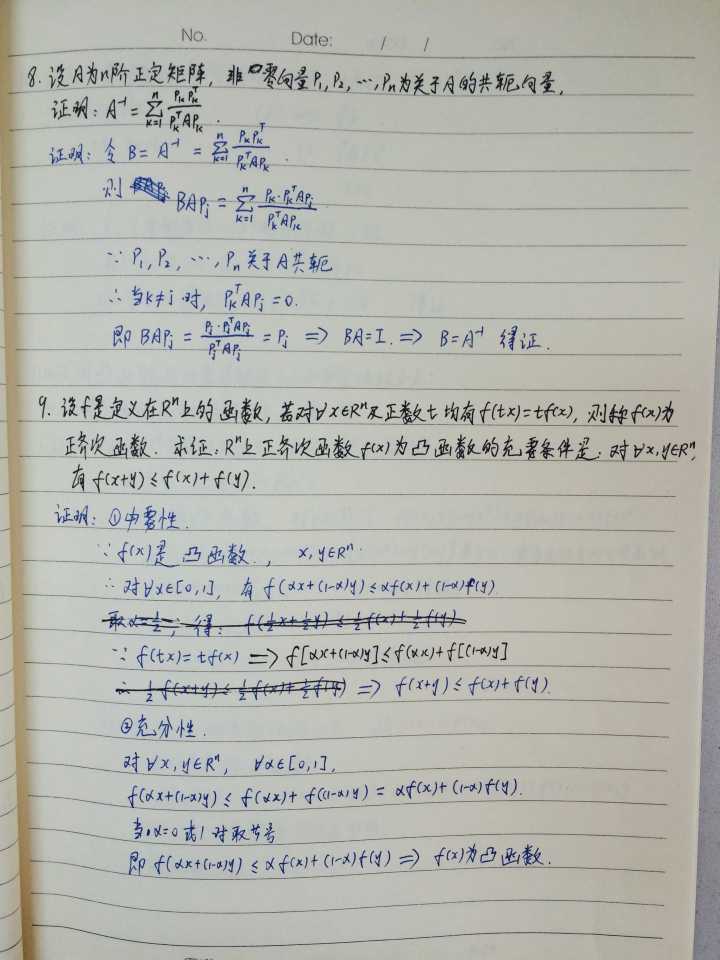 No. Date: / /
8. 设A为n阶正定矩阵, 非零向量P₁, P₂, …, Pₙ为关于A的共轭向量,
证明: A⁻¹ = ∑_{k=1}^{n} \frac{P_k P_k^T}{P_k^T A P_k}.
证明: 令 B = A⁻¹ = ∑_{k=1}^{n} \frac{P_k P_k^T}{P_k^T A P_k}.
则 BAP_j = ∑_{k=1}^{n} \frac{P_k · P_k^T A P_j}{P_k^T A P_k}.
∵ P₁, P₂, …, Pₙ关于A共轭
∴ 当k≠j时, P_k^T A P_j = 0.
即 BAP_j = \frac{P_j · P_j^T A P_j}{P_j^T A P_j} = P_j ⇒ BA = I. ⇒ B = A⁻¹ 得证.
9. 设f是定义在Rⁿ上的函数, 若对∀x∈Rⁿ及正数t均有f(tx)=tf(x), 则称f(x)为
正齐次函数. 求证: Rⁿ上正齐次函数f(x)为凸函数的充要条件是: 对∀x,y∈Rⁿ,
有 f(x+y) ≤ f(x) + f(y).
证明: ①必要性.
∵ f(x)是凸函数., x, y∈Rⁿ.
∴ 对∀α∈[0,1], 有 f(αx+(1-α)y) ≤ αf(x) + (1-α)f(y)
取α=½, 得: f(½x+½y) ≤ ½f(x)+½f(y)
∵ f(tx) = tf(x) ⇒ f[αx+(1-α)y] ≤ f(αx) + f[(1-α)y]
∴ ½f(x+y) ≤ ½f(x)+½f(y) ⇒ f(x+y) ≤ f(x) + f(y).
②充分性.
对∀x, y∈Rⁿ, ∀α∈[0,1],
f(αx+(1-α)y) ≤ f(αx) + f((1-α)y) = αf(x) + (1-α)f(y).
当α=0或1时取等号
即 f(αx+(1-α)y) ≤ αf(x) + (1-α)f(y) ⇒ f(x)为凸函数.